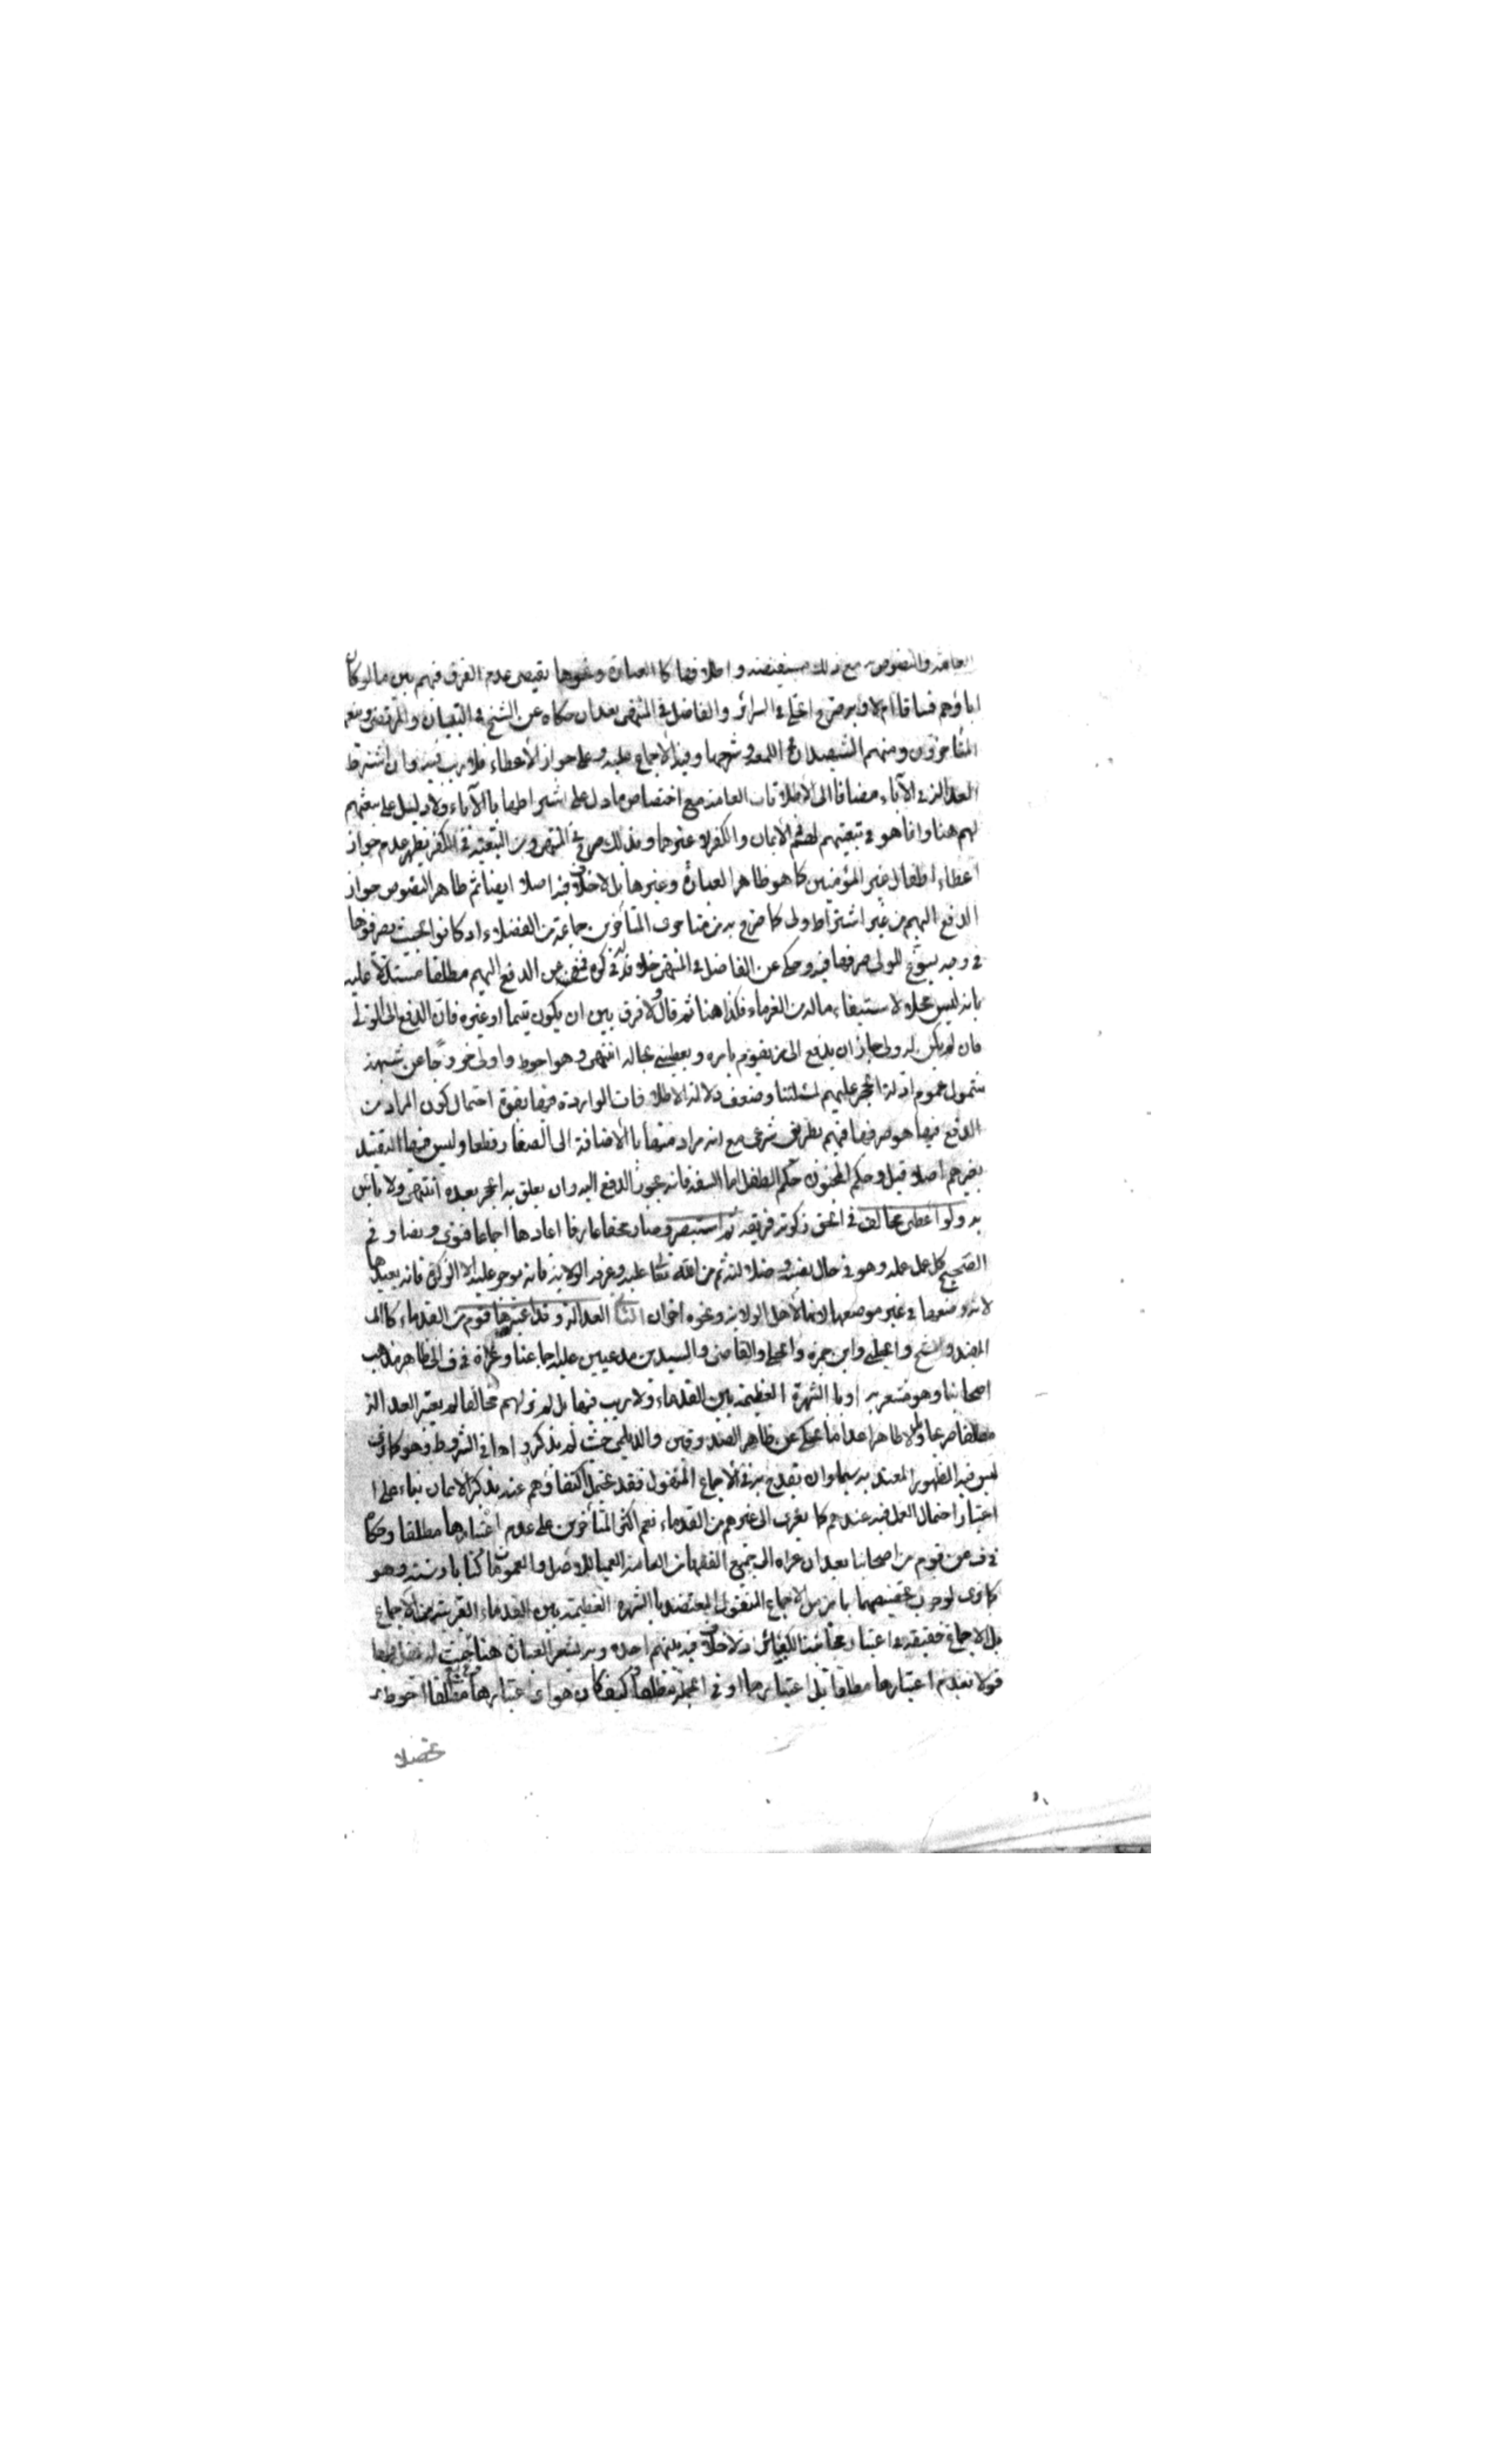 العامة والنصوص مع ذلك مستفيضة واطلاقها كالعبارة ونحوها يقتضي عدم الفرق فيهم بين ما لو كان
اباؤهم فساقا ام لا وبه صرح الحلي في السرائر والفاضل في المنتهى بعد ان حكاه عن الشيخ في التبيان والمرتضى وتبعهم
المتاخرون ومنهم الشهيدان في اللمعة وشرحها وفيه الاجماع عليه وعلى جواز الاعطاء فلا ريب فيه وان اشترط
العدالة في الآباء مضافا الى الاطلاقات العامة مع اختصاص ما دل على اشتراطها بالآباء ولا دليل على تبعيتهم
لهم هنا وانما هو في تبعيتهم لهم في الايمان والكفر لا غيرهما وبذلك صرح في المنتهى ومن التبعية في الكفر يظهر عدم جواز
اعطاء اطفال غير المؤمنين كما هو ظاهر العبارة وغيرها بل لا خلاف فيه اصلا ايضا ثم ظاهر النصوص جواز
الدفع اليهم من غير اشتراط ولي كما صرح به من متاخري المتأخرين جماعة من الفضلاء اذ كانوا بحيث يصرفونها
في وجه يسوغ للولي صرفها فيه وحكي عن الفاضل في المنتهى خلافه في كره فنفى عن الدفع اليهم مطلقا مستدلا عليه
بانه ليس محلا لاستيفاء ماله من الغرماء فكذا هنا ثم قال ولا فرق بين ان يكون يتيما او غيره فان الدفع الى الولي
فان لم يكن له ولي جاز ان يدفع الى من يقوم بامره ويعتني بحاله انتهى وهو احوط واولى خروجا عن شبهة
شمول عموم ادلة الحجر عليهم لمسئلتنا وضعف دلالة الاطلاقات الواردة فيها بقوة احتمال كون المراد من
الدفع فيها هو صرفها فيهم بطريق شرعي مع انه مراد منها بالاضافة الى الصغار قطعا وليس فيها التقييد
بغيرهم اصلا قيل وحكم المجنون حكم الطفل اما السفيه فانه يجوز الدفع اليه وان يعلق به الحجر بعده انتهى ولا باس
به ولو اعطى مخالف في الحق زكوته فريقه ثم استبصر وصار محقا عارفا اعادها اجماعا فتوى ونصا وفي
الصحيح كل عمل عمله وهو في حال نصبه وضلالته ثم من الله تعالى عليه وعرفه الولاية فانه يوجر عليه الا الزكوة فانه يعيدها
لانه وضعها في غير موضعها لانها لاهل الولاية ونحوه اخران الثاني العدالة وقد اعتبرها قوم من القدماء كالـ
المفيد والشيخ والحلبي وابن حمزة والحلي والقاضي والسيدين مدعيين عليه اجماعنا وعزاه في ف الى ظاهر مذهب
اصحابنا وهو مشعر به او بالشهرة العظيمة بين القدماء ولا ريب فيها بل لم نر لهم مخالفا لم يعتبر العدالة
مطلقا صريحا بل ولا ظاهرا عدا ما يحكى عن ظاهر الصدوقين والديلمي حيث لم يذكروها في الشروط وهو كما ترى
ليس فيه الظهور المعتد به سيما وان يقدح به في الاجماع المنقول فقد يحتمل اكتفاؤهم عنه بذكر الايمان بناء على
اعتبار احتمال العمل فيه عندهم كما يعزى الى غيرهم من القدماء نعم اكثر المتأخرين على عدم اعتبارها مطلقا وحكاه
في ف عن قوم من اصحابنا بعد ان عزاه الى جميع الفقهاء العامة العمياء للاصل والعمومات كتابا وسنة وهو
كما ترى لوجوب تخصيصهما بما مر من الاجماع المنقول المعتضد بالشهرة العظيمة بين القدماء القريبة من الاجماع
بل الاجماع حقيقة واعتبار مجانبة الكبائر ولا خلاف فيه بينهم اجده وبه يشعر العبارة هنا حيث لم
قولا بعدم اعتبارها مطلقا بل اعتبارها او في الجملة مطلقا وكيف كان هو اى اعتبارها مطلقا احوط
تحصيلا